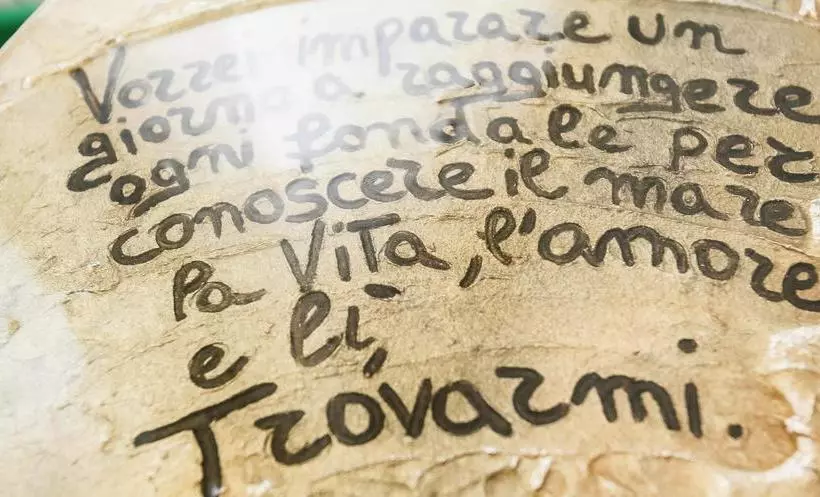 Vorrei imparare un
giorno a raggiungere
ogni fondale per
conoscere il mare
la vita, l'amore
e lì,
Trovarmi.